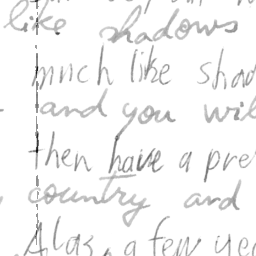 like shadows
much like
and you
then have a
country and
Alas, a few